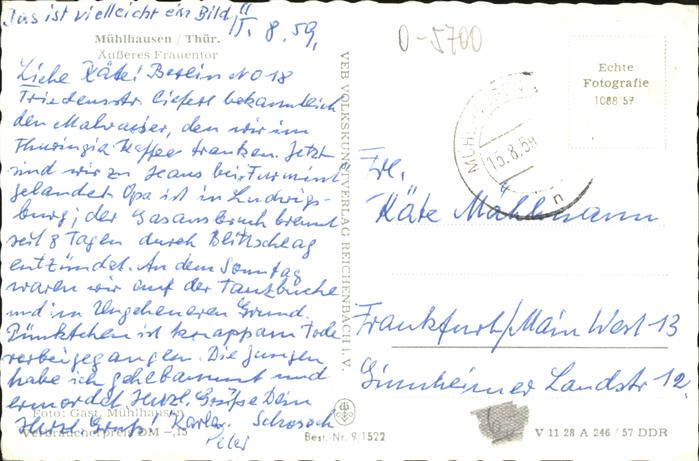 Das ist vielleicht ein Bild!!
15.8.59.
Mühlhausen / Thür.
Äußeres Frauentor
Liebe Käte! Berlin NO 18
Friedensstr. liefert bekanntlich
den Malwasser, den wir im
Thuringia Kaffee tranken. Jetzt
sind wir zu
gelandet. Opa ist in Ludwigs-
burg; der Gasausbruch brennt
seit 8 Tagen durch Blitzschlag
entzündet. An dem Sonntag
waren wir auf der Tanzbuche
und im Ungeheueren Grund.
Pünktchen ist knapp am Tode
vorbeigegangen. Die Jungen
habe ich und
ermordet. Herzl. Grüße Dein
Herzl. Gruß! Karla. Schorsch
Peter
Foto: Gast, Mühlhausen
Verbraucherpreis DM -,15
VEB VOLKSKUNSTVERLAG REICHENBACH i. V.
Best.-Nr. 9/1522
0-5700
Echte
Fotografie
1088 57
15.8.59
Frl.
Käte Mählmann
Frankfurt/Main West 13
Ginnheimer Landstr 12.
V 11 28 A 246 / 57 DDR